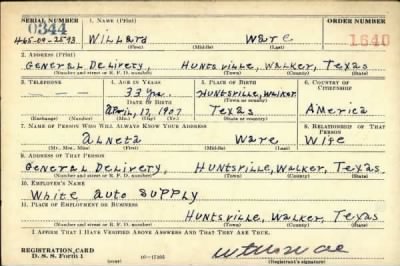 SERIAL NUMBER 1. NAME (Print) ORDER NUMBER
0344
465-09-2593 Willard Ware 1640
(First) (Middle) (Last)
2. ADDRESS (Print)
General Delivery, Huntsville, Walker, Texas
(Number and street or R. F. D. number) (Town) (County) (State)
3. TELEPHONE 4. AGE IN YEARS 5. PLACE OF BIRTH 6. COUNTRY OF CITIZENSHIP
33 Yrs. Huntsville, Walker
DATE OF BIRTH (Town or county)
April, 17, 1907 Texas America
(Exchange) (Number) (Mo.) (Day) (Yr.) (State or country)
7. NAME OF PERSON WHO WILL ALWAYS KNOW YOUR ADDRESS 8. RELATIONSHIP OF THAT PERSON
Alneta Ware Wife
(Mr., Mrs., Miss) (First) (Middle) (Last)
9. ADDRESS OF THAT PERSON
General Delivery, Huntsville, Walker, Texas
(Number and street or R. F. D. number) (Town) (County) (State)
10. EMPLOYER'S NAME
White Auto Supply
11. PLACE OF EMPLOYMENT OR BUSINESS
Huntsville, Walker, Texas
(Number and street or R. F. D. number) (Town) (County) (State)
I AFFIRM THAT I HAVE VERIFIED ABOVE ANSWERS AND THAT THEY ARE TRUE.
REGISTRATION CARD
D. S. S. Form 1 16-17105
(Registrant's signature)